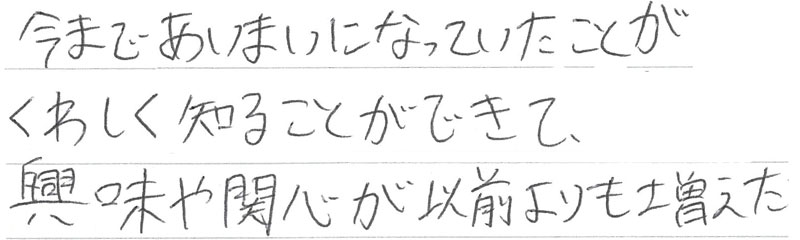 今まであいまいになっていたことが
くわしく知ることができて、
興味や関心が以前よりも増えた